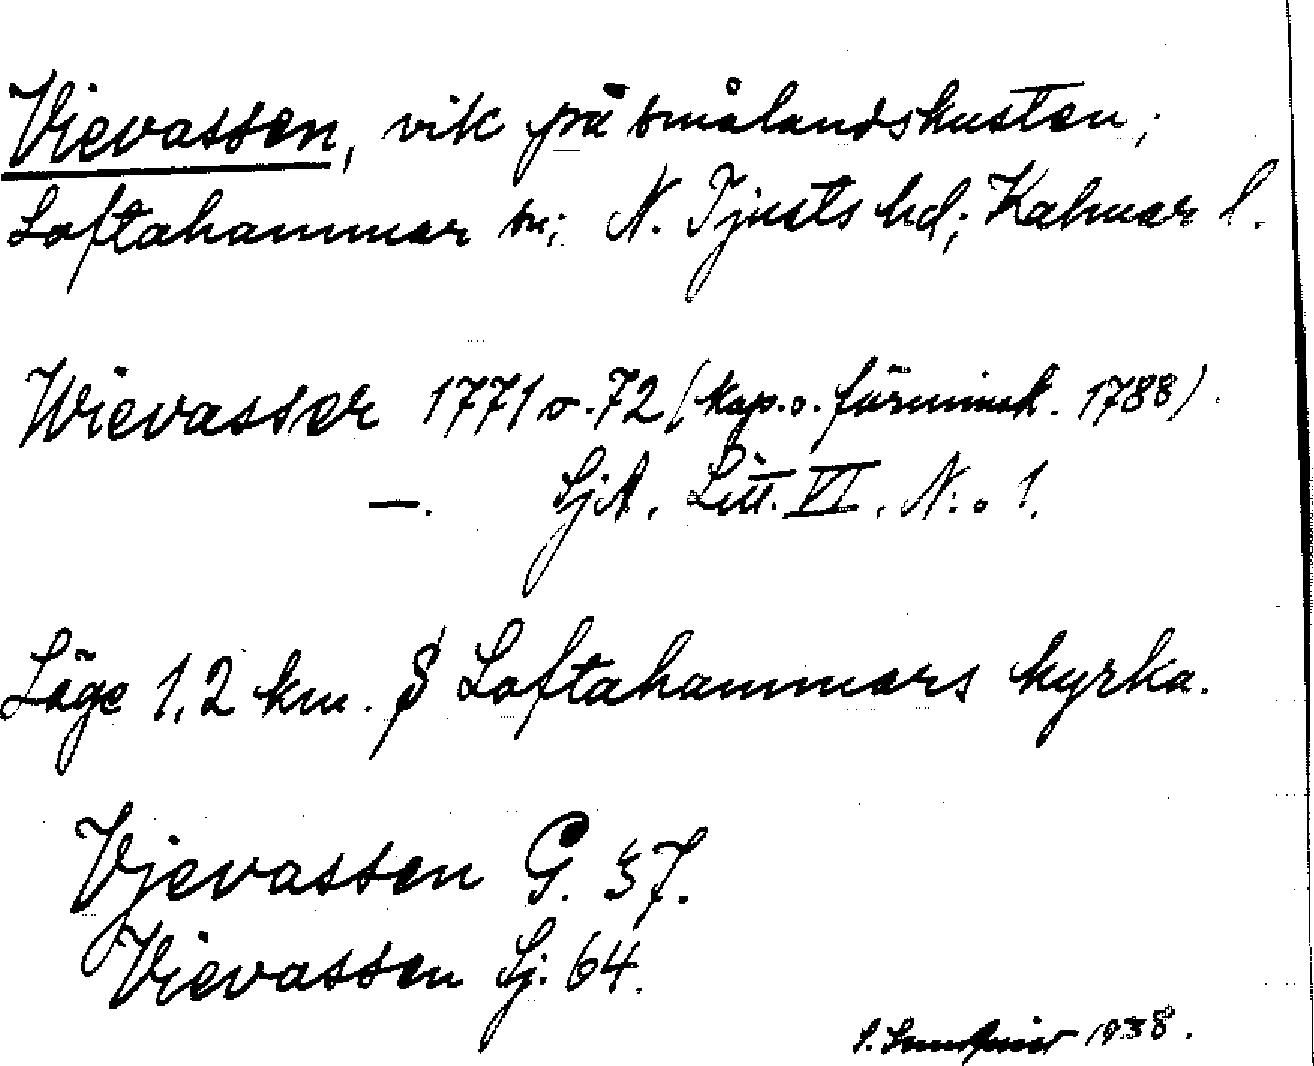 Vievassen, vik på smålandskusten;
Loftahammar sn; N. Tjusts hd; Kalmar l.
Wievasser 1771 o. 72 (kop. o. förminsk. 1788).
—. SjA. Litt. VI. N:o 1.
Läge 1,2 km. S Loftahammars kyrka.
Vjevassen G. 57.
Vievassen Sj. 64.
1938.